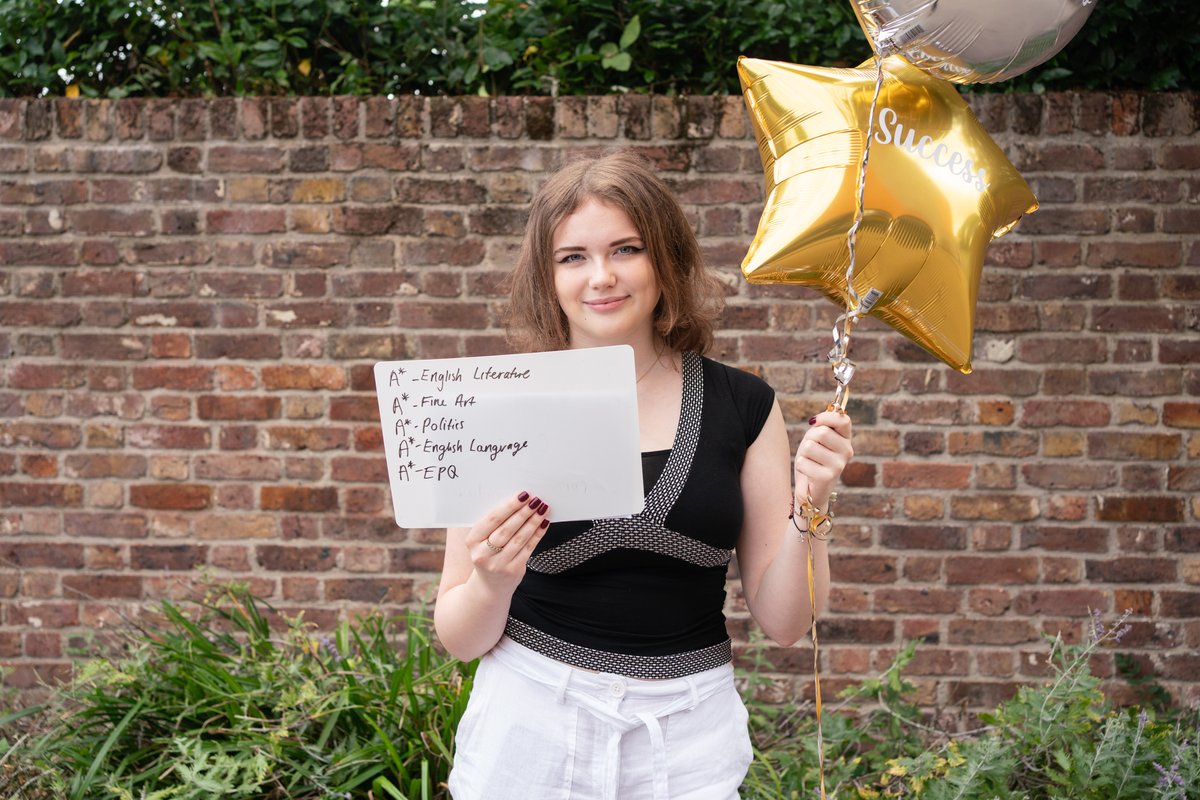 A* - English Literature
A* - Fine Art
A* - Politics
A* - English Language
A* - EPQ
Success